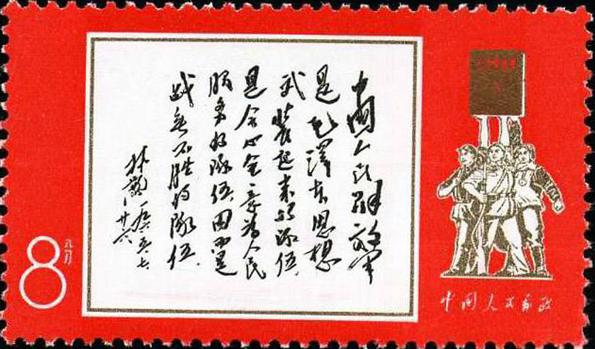 中國人民解放军
是毛澤东思想
武装起来的队伍,
是全心全意为人民
服务的队伍,因而是
战无不胜的队伍。
林彪 一九六五、七、
廿六
8分
中国人民邮政